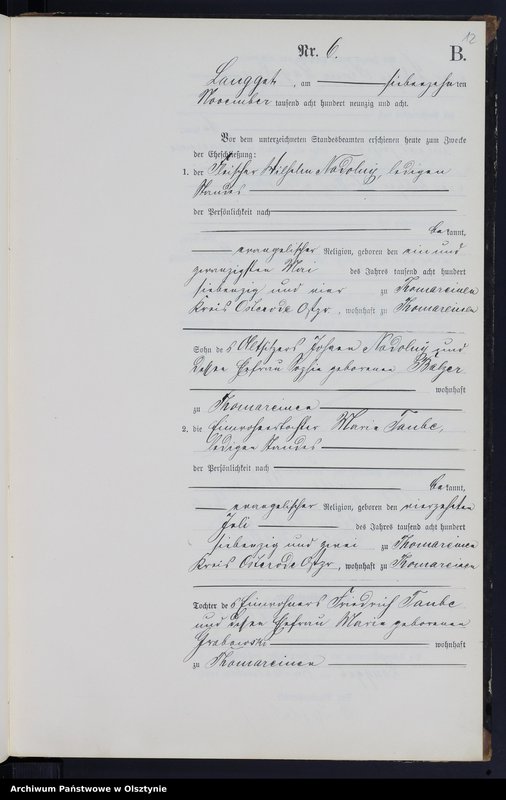 12
Nr. 6.
B.
Langgut, am siebenzehnten
November tausend acht hundert neunzig und acht.
Vor dem unterzeichneten Standesbeamten erschienen heute zum Zwecke
der Eheschließung:
1. der Fleischer Wilhelm Nadolny, ledigen
Standes
der Persönlichkeit nach
bekannt,
evangelischer Religion, geboren den einund
zwanzigsten Mai des Jahres tausend acht hundert
siebenzig und vier zu Thomareinen
Kreis Osterode Ostpr., wohnhaft zu Thomareinen
Sohn des Altsitzers Johann Nadolny und
dessen Ehefrau Sophie geborenen Balzer
wohnhaft
zu Thomareinen
2. die Einwohnertochter Marie Taube,
ledigen Standes
der Persönlichkeit nach
bekannt,
evangelischer Religion, geboren den vierzehnten
Juli des Jahres tausend acht hundert
siebenzig und zwei zu Thomareinen
Kreis Osterode Ostpr., wohnhaft zu Thomareinen
Tochter des Einwohners Friedrich Taube
und dessen Ehefrau Marie geborenen
Grabowski wohnhaft
zu Thomareinen
Archiwum Państwowe w Olsztynie